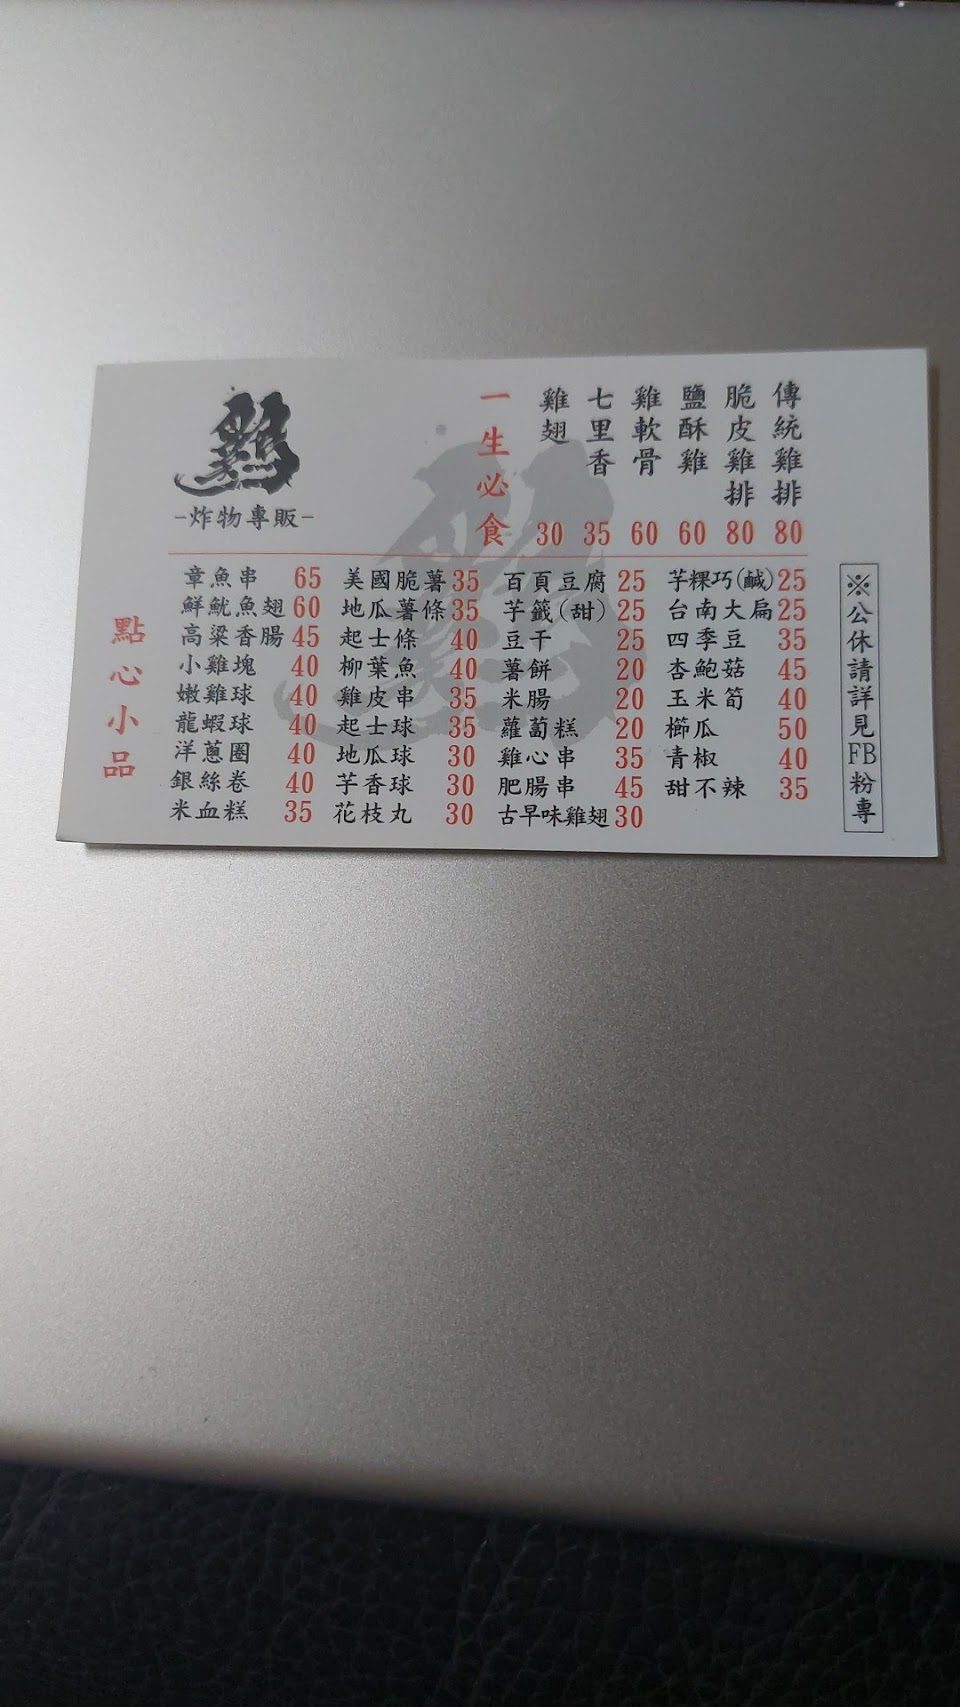 雞
-炸物專販-
一生必食
傳統雞排 80
脆皮雞排 80
鹽酥雞 60
雞軟骨 60
七里香 35
雞翅 30
點心小品
章魚串 65
鮮魷魚翅 60
高粱香腸 45
小雞塊 40
嫩雞球 40
龍蝦球 40
洋蔥圈 40
銀絲卷 40
米血糕 35
美國脆薯 35
地瓜薯條 35
起士條 40
柳葉魚 40
雞皮串 35
起士球 35
地瓜球 30
芋香球 30
花枝丸 30
百頁豆腐 25
芋籤(甜) 25
豆干 25
薯餅 20
米腸 20
蘿蔔糕 20
雞心串 35
肥腸串 45
古早味雞翅 30
芋粿巧(鹹) 25
台南大扁 25
四季豆 35
杏鮑菇 45
玉米筍 40
櫛瓜 50
青椒 40
甜不辣 35
※公休請詳見FB粉專